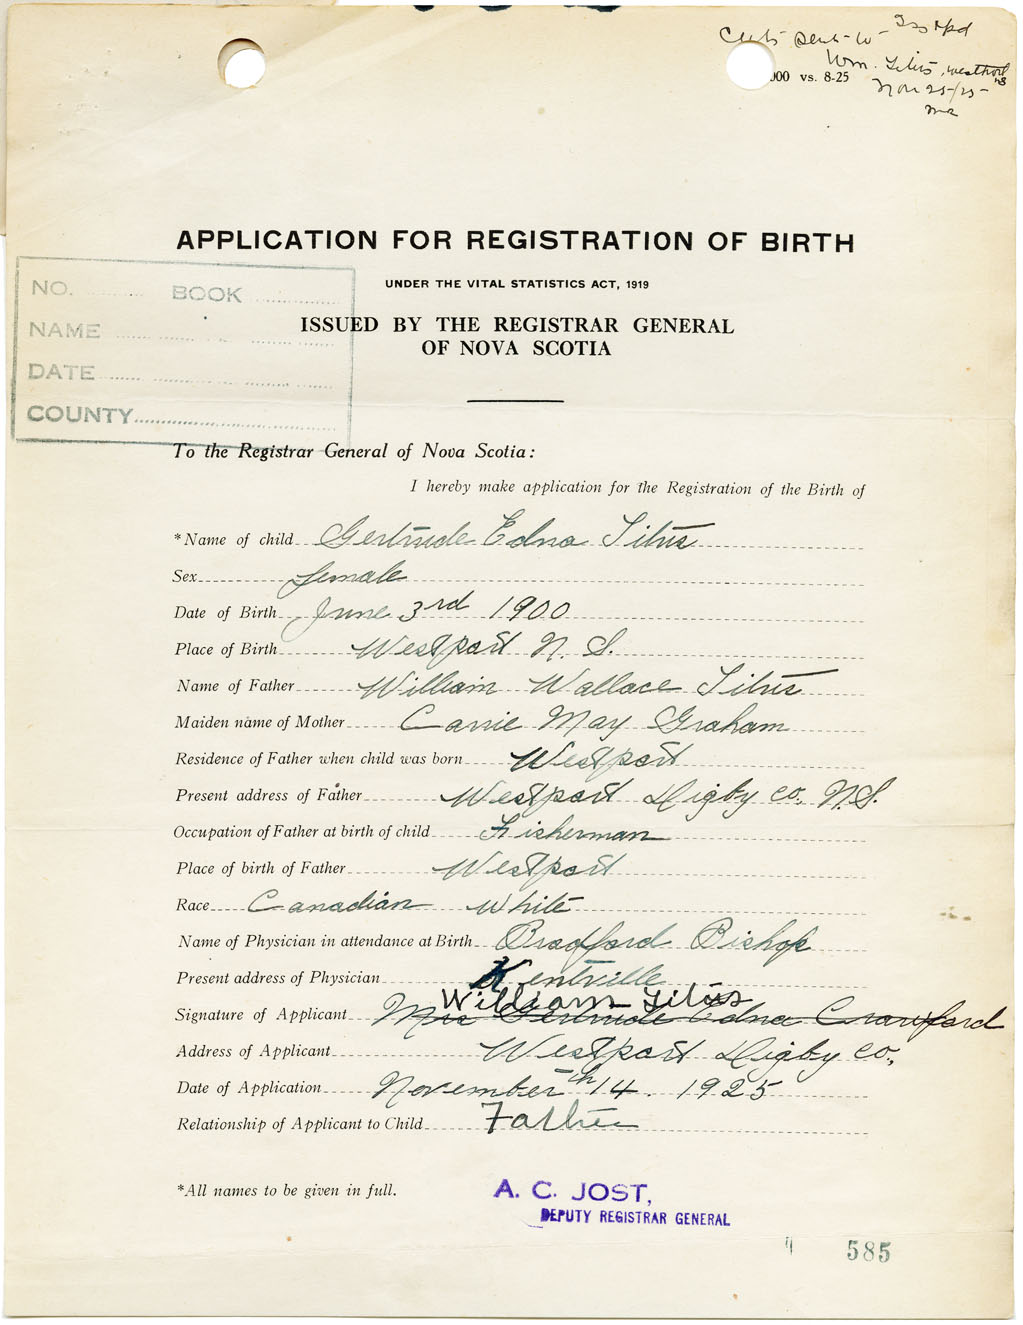 Certs sent to Iss Apd
Wm. Titus, Westport
NS
Nov 25/25
000 vs. 8-25
APPLICATION FOR REGISTRATION OF BIRTH
UNDER THE VITAL STATISTICS ACT, 1919
ISSUED BY THE REGISTRAR GENERAL
OF NOVA SCOTIA
NO. BOOK
NAME
DATE
COUNTY
To the Registrar General of Nova Scotia:
I hereby make application for the Registration of the Birth of
*Name of child Gertrude Edna Titus
Sex female
Date of Birth June 3rd 1900
Place of Birth Westport N. S.
Name of Father William Wallace Titus
Maiden name of Mother Carrie May Graham
Residence of Father when child was born Westport
Present address of Father Westport Digby Co., N.S.
Occupation of Father at birth of child Fisherman
Place of birth of Father Westport
Race Canadian White
Name of Physician in attendance at Birth Bradford Bishop
Present address of Physician Kentville
William Titus
Signature of Applicant Mrs Gertrude Edna Crawford
Address of Applicant Westport Digby Co.,
Date of Application November 14th. 1925
Relationship of Applicant to Child Father
*All names to be given in full.
A. C. JOST,
DEPUTY REGISTRAR GENERAL
585